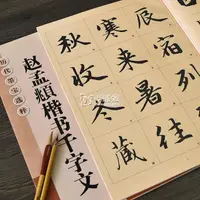 辰宿列
寒来暑往
秋收冬藏
赵孟頫楷书千字文
历代墨宝选粹